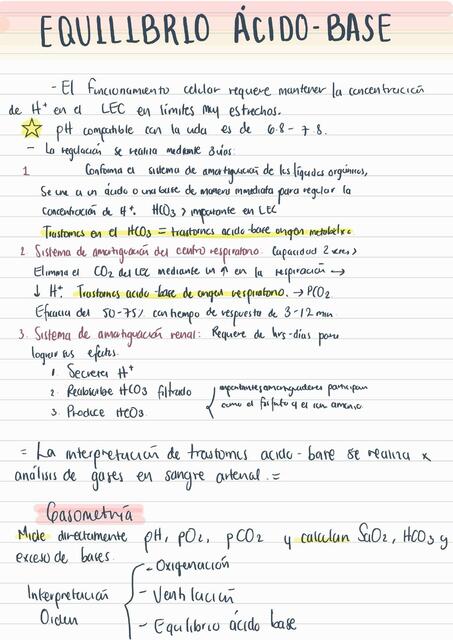 EQUILIBRIO ÁCIDO-BASE
- El funcionamiento celular requiere mantener la concentración
de H⁺ en el LEC en límites muy estrechos.
pH compatible con la vida es de 6.8 - 7.8.
- La regulación se realiza mediante 3 vías:
1 Conforma el sistema de amortiguación de los líquidos orgánicos,
Se une a un ácido o una base de manera inmediata para regular la
concentración de H⁺. HCO3 > importante en LEC
Trastornos en el HCO3 = trastornos acido-base origen metabolico
2. Sistema de amortiguación del centro respiratorio: Capacidad 2 veces >
Elimina el CO2 del LEC mediante un ↑ en la respiración →
↓ H⁺. Trastornos acido-base de origen respiratorio. → PCO2
Eficacia del 50-75% con tiempo de respuesta de 3-12 min.
3. Sistema de amortiguación renal: Requiere de hrs-días para
lograr sus efectos.
1. Secretar H⁺
2. Reabsorbe HCO3 filtrado
3. Produce HCO3
amortiguadores participan
como el fosfato y el ion amonio.
= La interpretación de trastornos acido-base se realiza x
análisis de gases en sangre arterial. =
Gasometría
Mide directamente pH, pO2, pCO2 y calculan SaO2, HCO3 y
exceso de bases.
Interpretación
Orden
- Oxigenación
- Ventilación
- Equilibrio ácido base